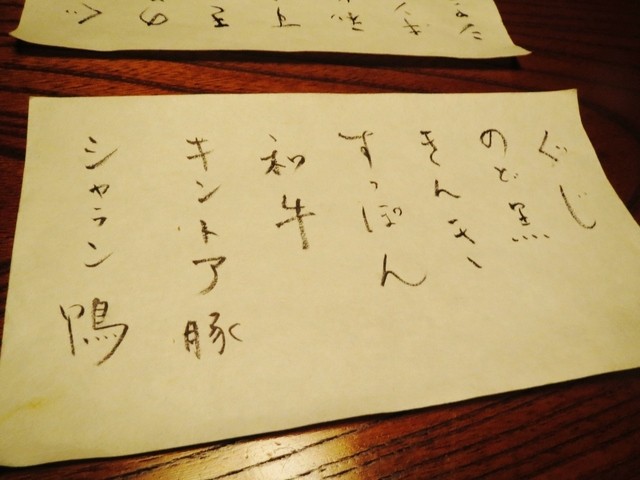 ぐじ
のど黒
きんき
すっぽん
和牛
キントア豚
シャラン鴨